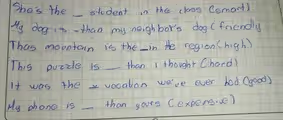 She's the _ student in the class (smart)
My dog is - than my neighbor's dog (friendly
Thas mountain is the - in the region (high)
This puzzle is _ than I thought (hard)
It was the - vacation we've ever had (good)
My phone is _ than yours (expensive)